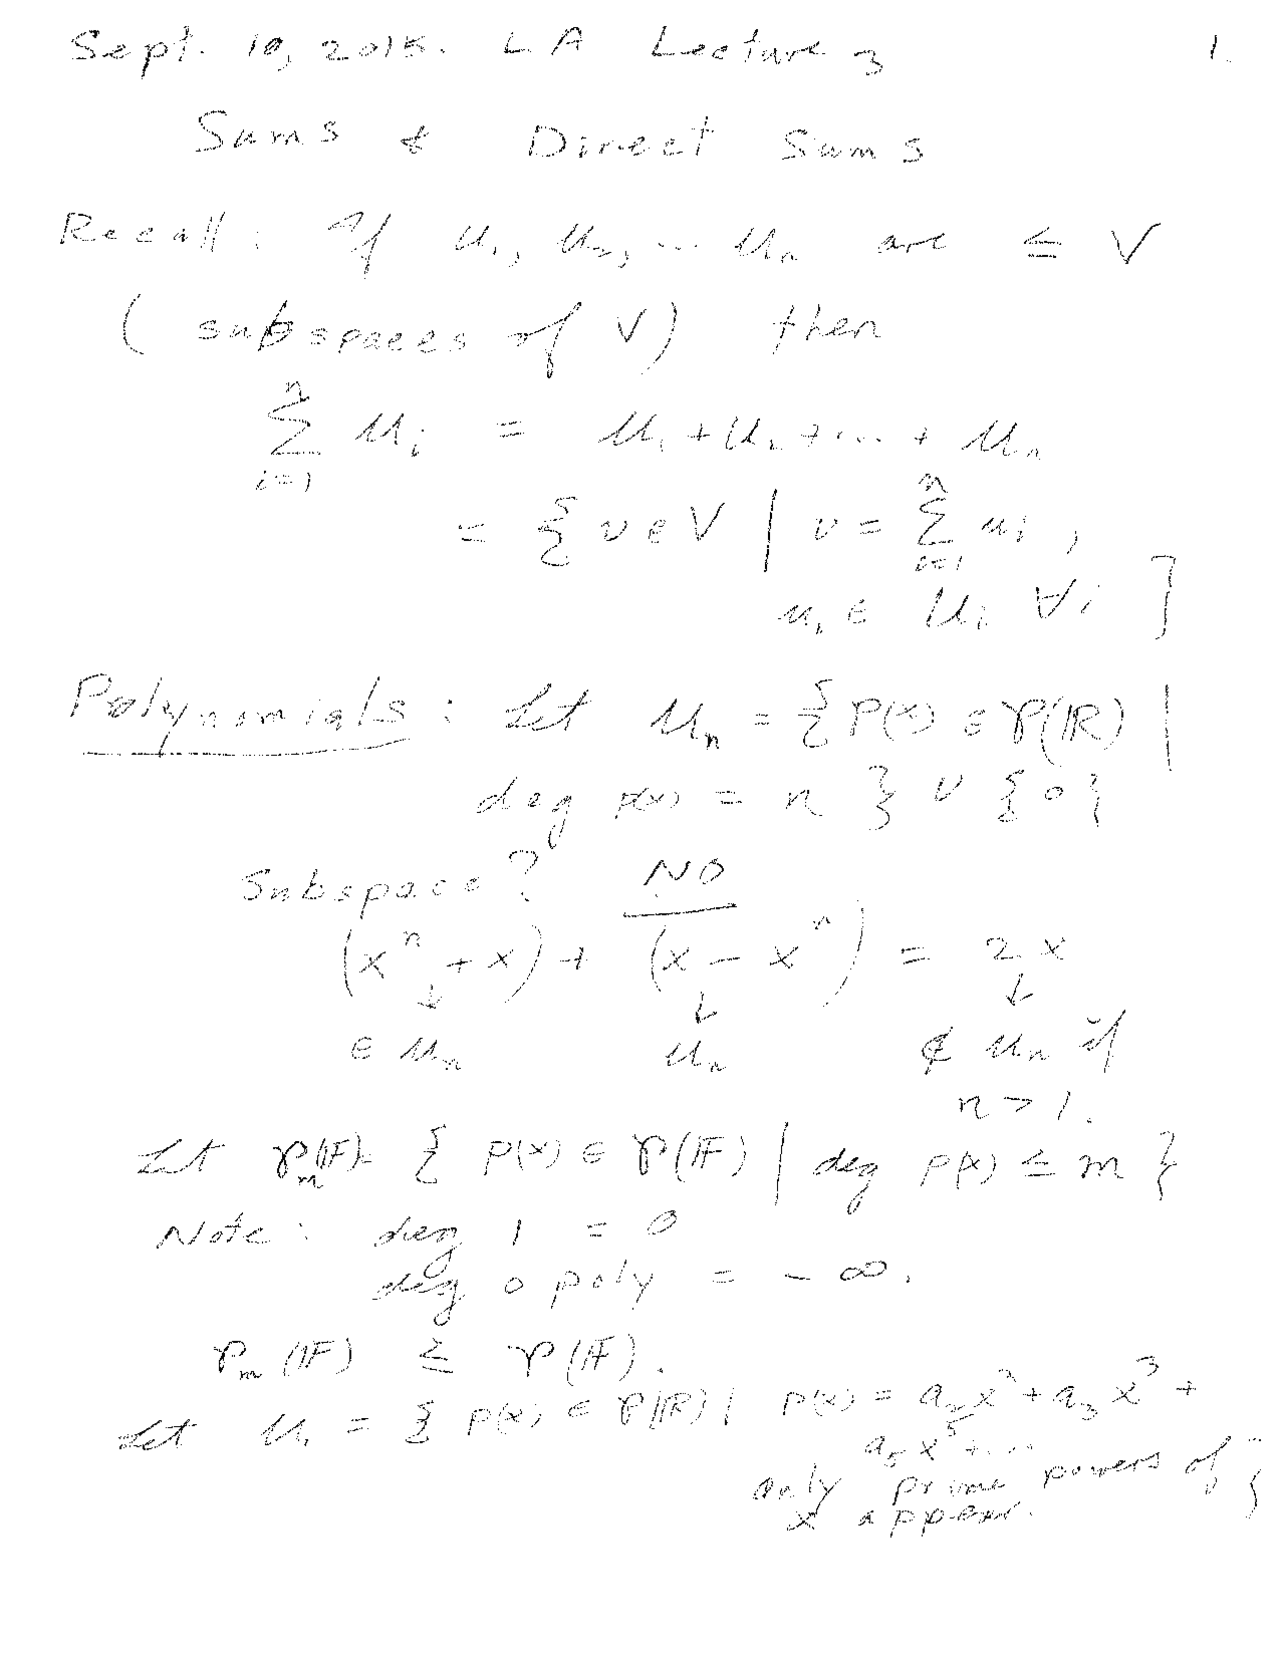 Sept. 10, 2015. LA Lecture 3 1.
Sums & Direct Sums
Recall: If U₁, U₂, ... Uₙ are ≤ V
(subspaces of V) then
∑ᵢ₌₁ⁿ Uᵢ = U₁ + U₂ + ... + Uₙ
= { v ∈ V | v = ∑ᵢ₌₁ⁿ uᵢ ,
uᵢ ∈ Uᵢ ∀i }
Polynomials: Let Uₙ = { P(x) ∈ 𝒫(ℝ) |
deg p(x) = n } ∪ { 0 }
Subspace? NO
(xⁿ + x) + (x - xⁿ) = 2x
↓ ↓ ↓
∈ Uₙ Uₙ ∉ Uₙ if
n > 1.
Let 𝒫ₘ(𝔽) = { p(x) ∈ 𝒫(𝔽) | deg p(x) ≤ m }
Note: deg 1 = 0
deg 0 poly = -∞.
𝒫ₘ(𝔽) ≤ 𝒫(𝔽).
Let U₁ = { p(x) ∈ 𝒫(ℝ) | p(x) = a₂x² + a₃x³ +
a₅x⁵ + ...
only prime powers of
x appear. }